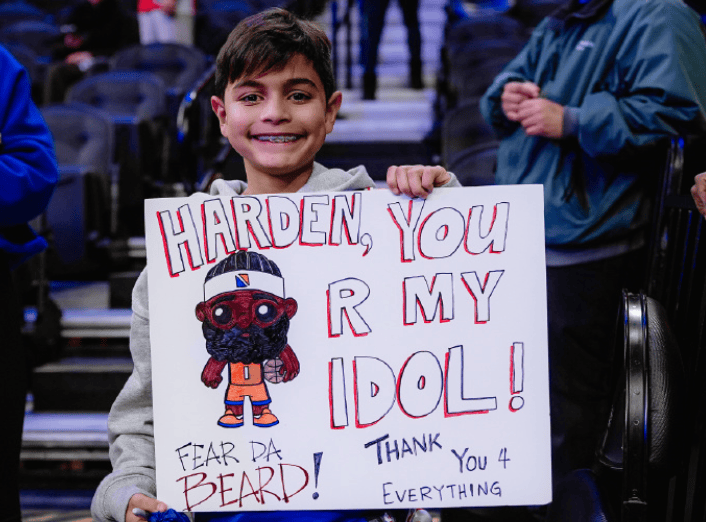 HARDEN, YOU
R MY
IDOL!
FEAR DA
BEARD!
THANK
YOU 4
EVERYTHING